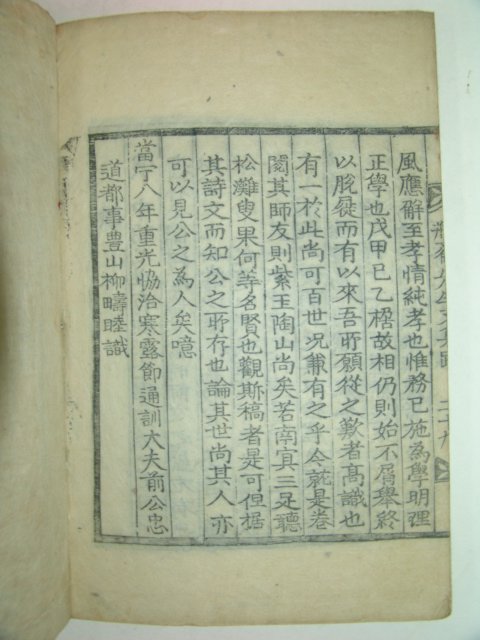 風應辭至孝情純孝也惟務已施為學明理
正學也戊甲已乙楛故相仍則始不屑舉終
以脫屣而有以來吾所願從之歎者高識也
有一於此尚可百世況兼有之乎今就是卷
閱其師友則紫王陶山尚矣若南冥三足聽
松灘叟果何等名賢也觀斯稿者是可但据
其詩文而知公之所存也論其世尚其人亦
可以見公之為人矣噫
當宁八年重光恊洽寒露節通訓大夫前公忠
道都事豊山柳疇睦識